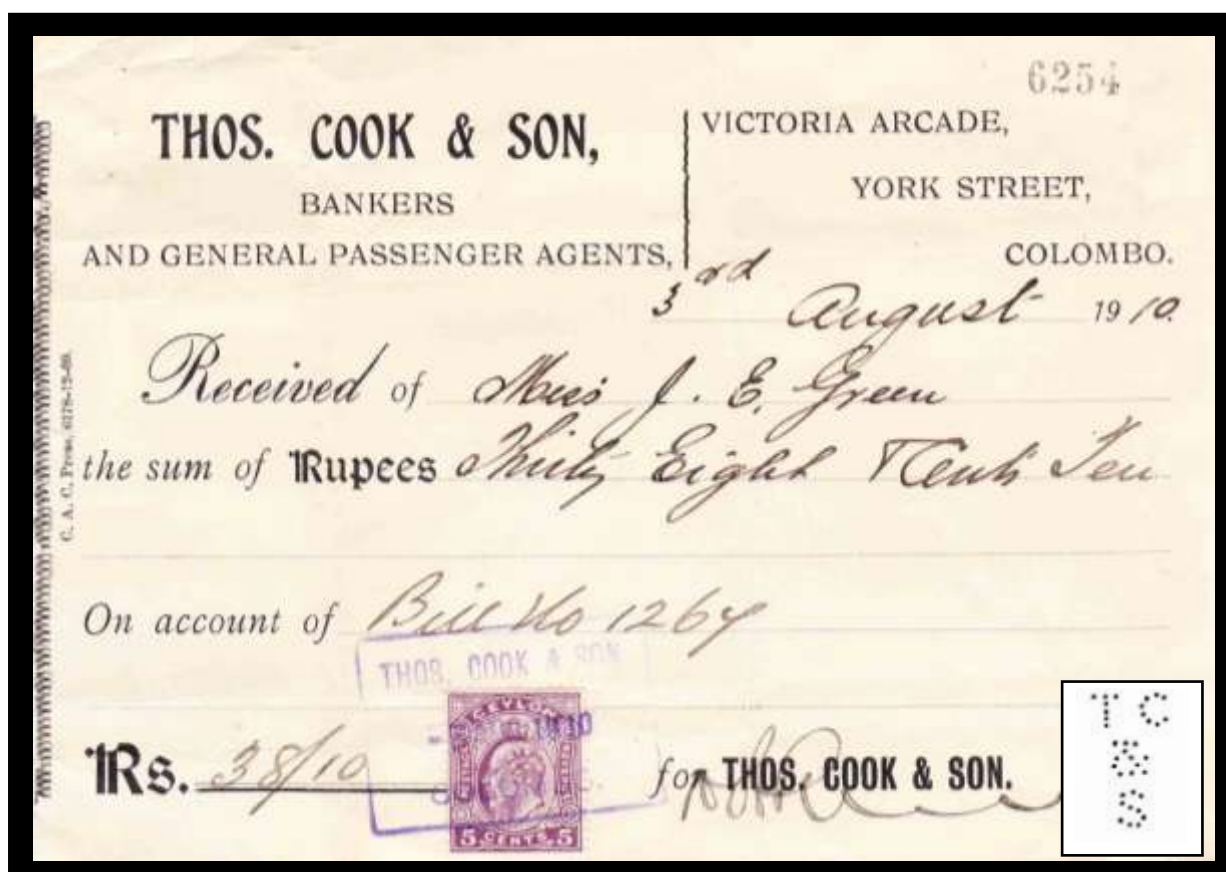 6254
THOS. COOK & SON,
BANKERS
AND GENERAL PASSENGER AGENTS,
VICTORIA ARCADE,
YORK STREET,
COLOMBO.
3rd August 1910.
Received of Miss J. E. Green
the sum of Rupees Thirty Eight & Cents Ten
On account of Bill No 1264
THOS. COOK & SON
1910
CEYLON
5 CENTS. 5
Rs. 38/10
for THOS. COOK & SON.
C. A. C. Press, 6278-12-09.
T C
&
S